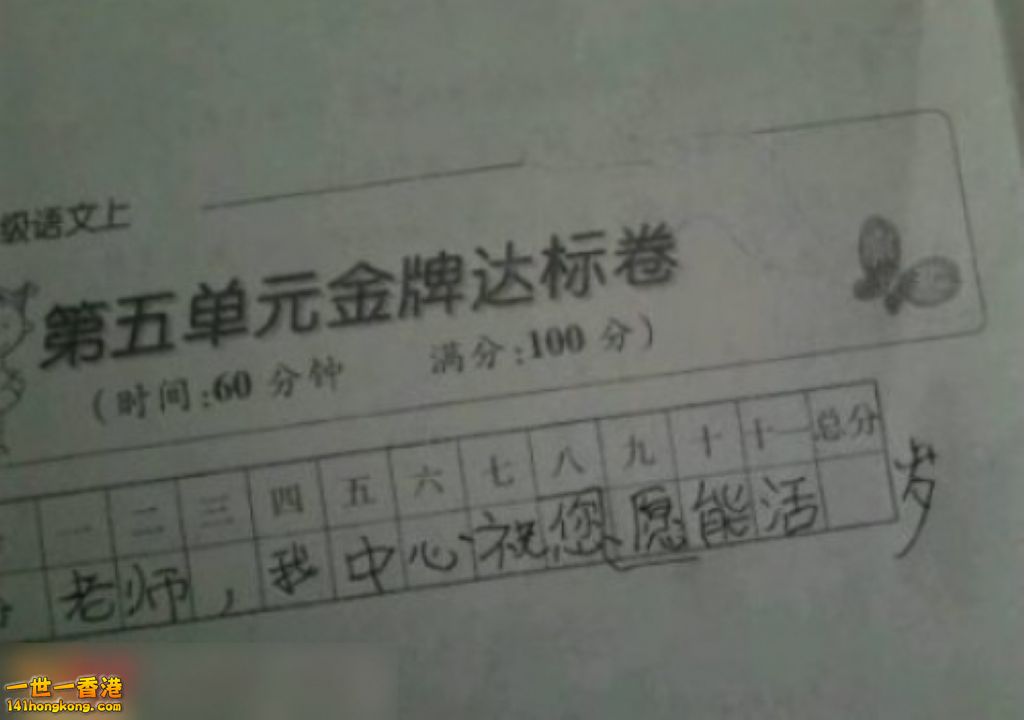 级语文上
第五单元金牌达标卷
(时间:60 分钟 满分:100 分)
一 二 三 四 五 六 七 八 九 十 十一 总分
老师,我中心祝您愿能活 岁
一世一香港
141hongkong.com